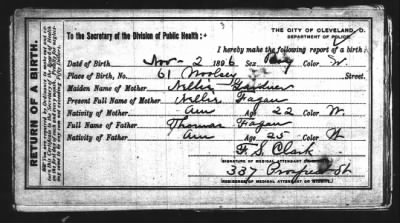 THE CITY OF CLEVELAND, O.
DEPARTMENT OF POLICE
To the Secretary of the Division of Public Health:
I hereby make the following report of a birth:
Date of Birth Nov- 2 1896 Sex Boy Color W.
Place of Birth, No. 61 Woolsey Street.
Maiden Name of Mother Nellie Gardner
Present Full Name of Mother Nellie Fagan
Nativity of Mother Am Age 22 Color W.
Full Name of Father Thomas Fagan
Nativity of Father Am Age 25 Color W
F. S. Clark
SIGNATURE OF MEDICAL ATTENDANT OR
337 Prospect St
RESIDENCE OF MEDICAL ATTENDANT OR
RETURN OF A BIRTH.